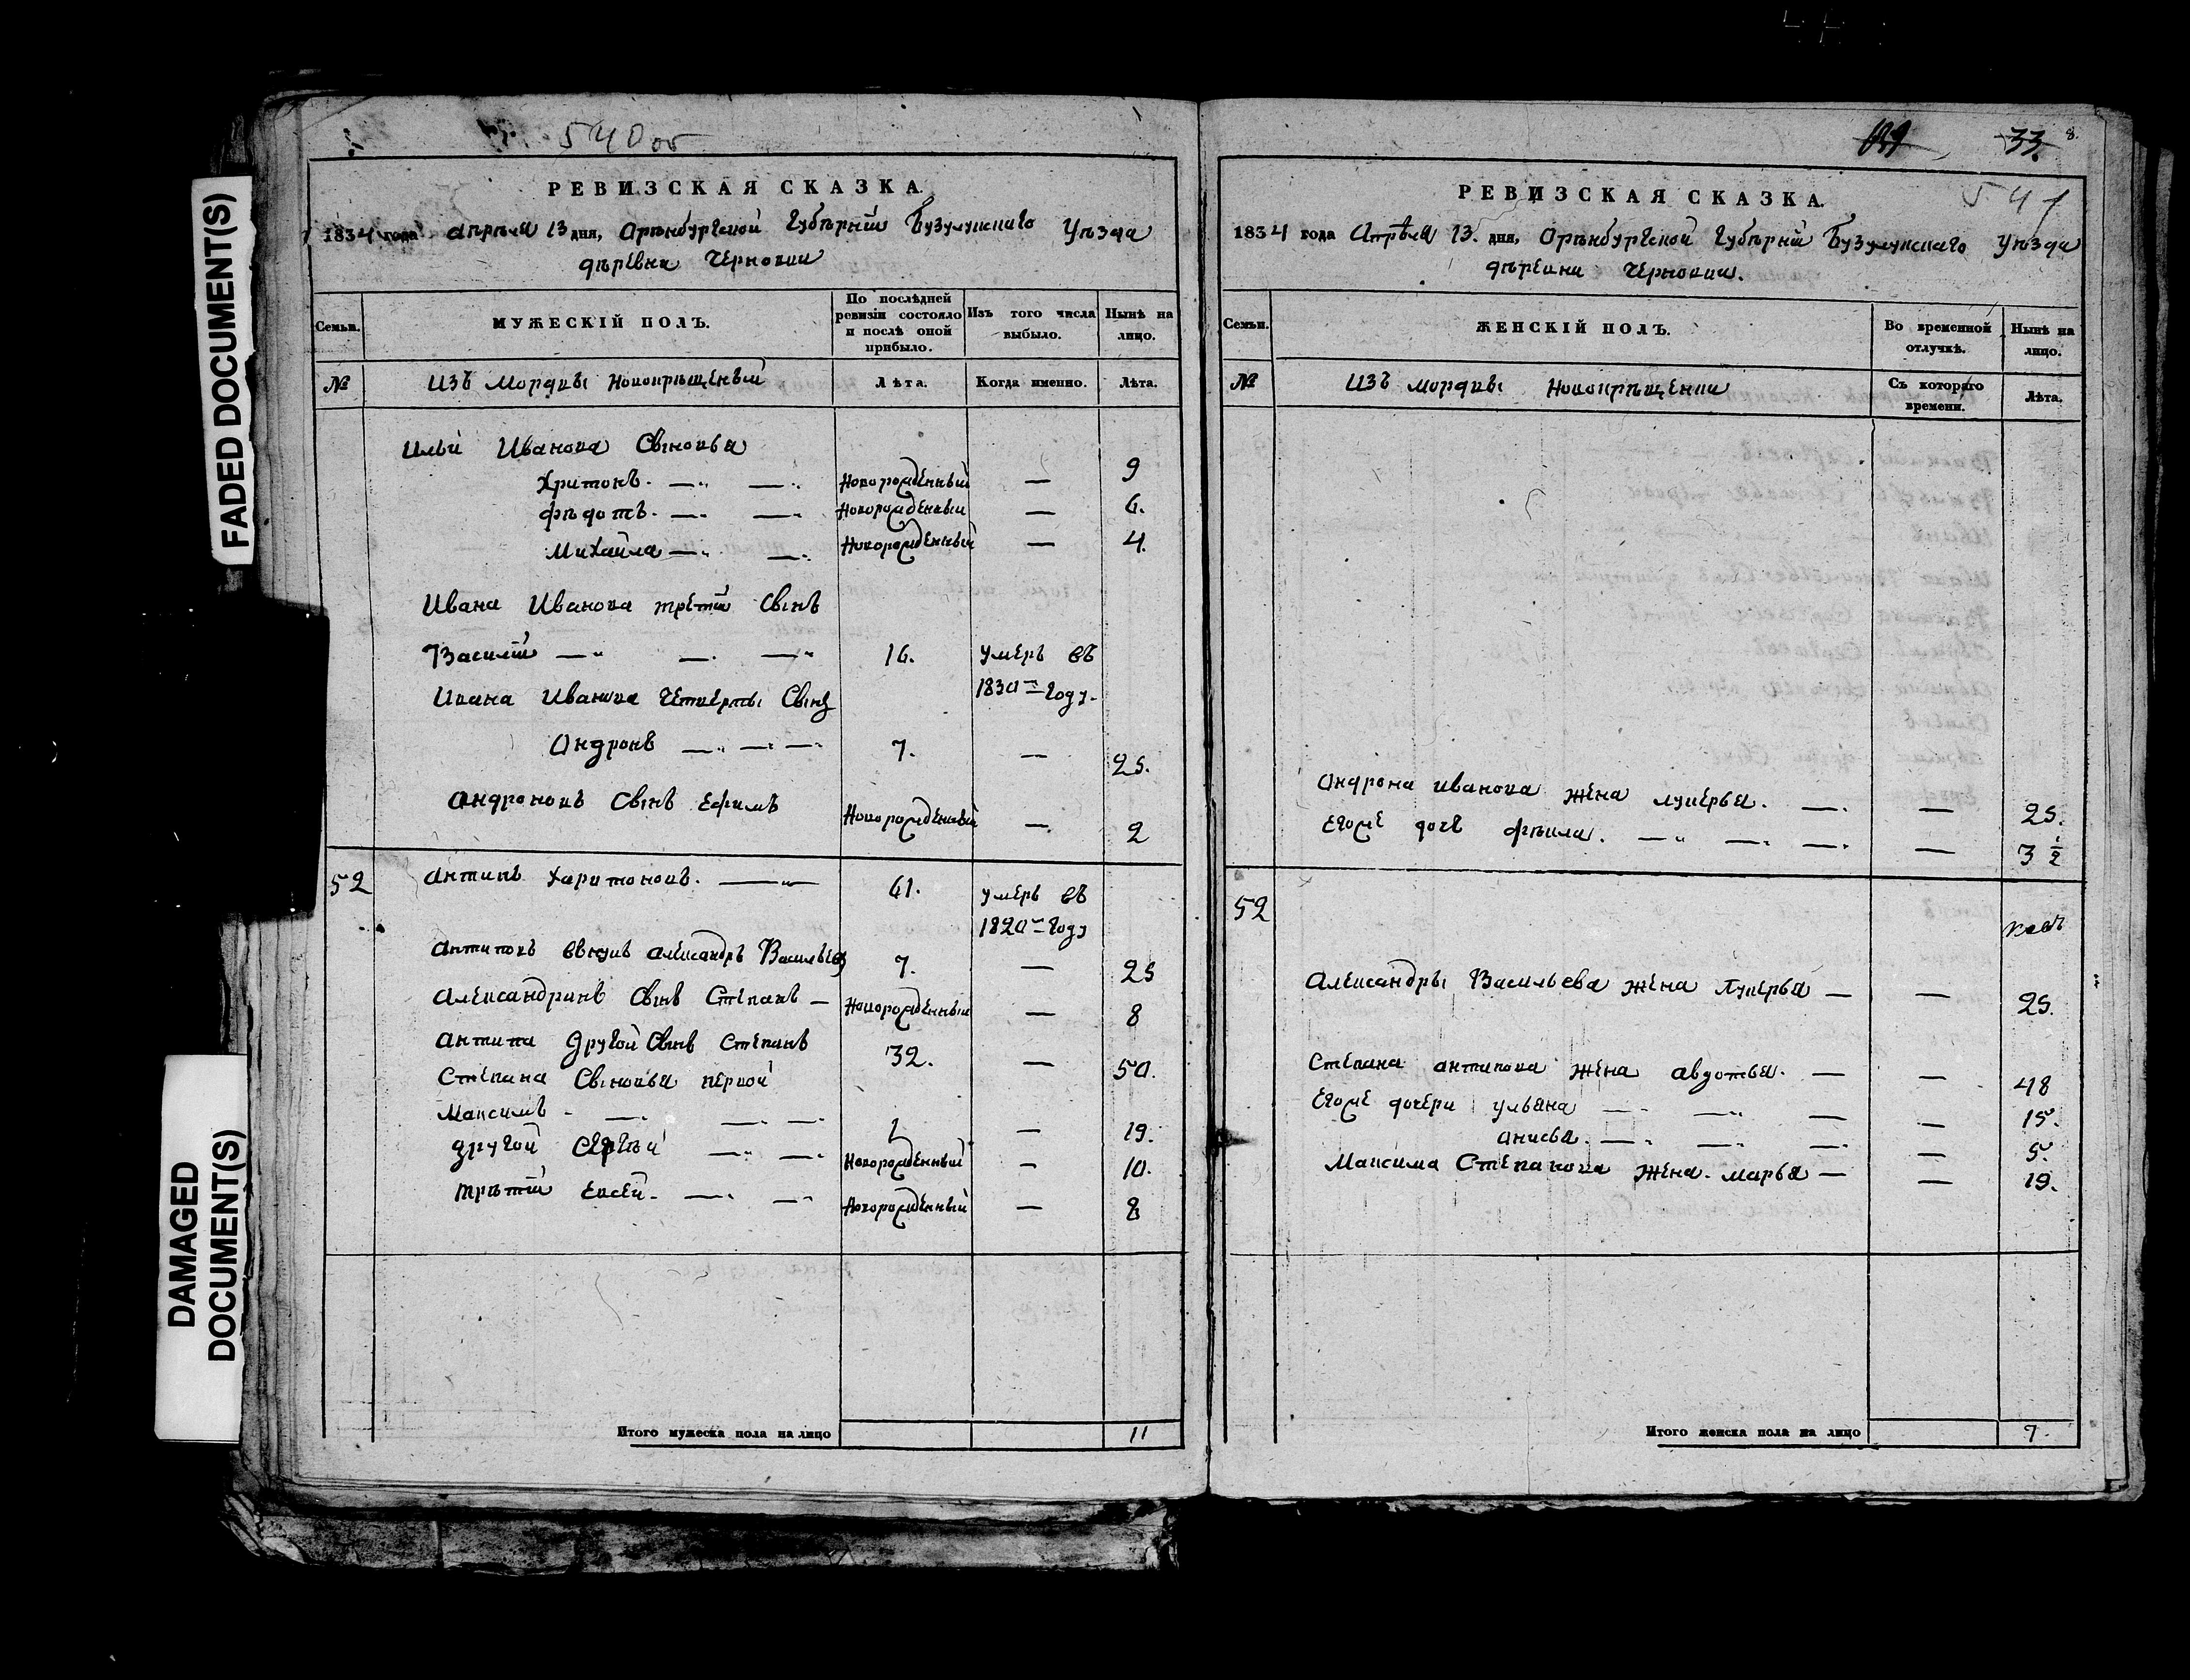 FADED DOCUMENT(S)
DAMAGED
DOCUMENT(S)
540 об
РЕВИЗСКАЯ СКАЗКА.
1834 года апреля 13 дня, Оренбургской Губѣрнiи Бузулукскаго Уѣзда
дѣревни Черновки
Семьи.
МУЖЕСКІЙ ПОЛЪ.
По послѣдней ревизіи состояло и послѣ оной прибыло.
Изъ того числа выбыло.
Нынѣ на лицо.
№
Изъ Мордвы Новокрѣщеный
Лѣта.
Когда именно.
Лѣта.
Ильи Иванова Сыновья
Харитонъ Новорожденный — 9
Фѣдотъ Новорожденный — 6.
Михайла Новорожденный — 4.
Ивана Иванова третiй Сынъ
Василiй 16. умеръ въ
1830м году.
Ивана Иванова Четверты Сынъ
Андронъ 7. — 25.
Андроновъ Сынъ Ефимъ Новорожденный — 2
52 Антипъ Харитоновъ. 61. умеръ въ
1820м году
Антиповъ внукъ Александръ Васильевъ 7. — 25
Александринъ Сынъ Степанъ — Новорожденный — 8
Антипа Другой Сынъ Степанъ 32. — 50.
Степана Сыновья первой
Максимъ 1 — 19.
другой Сергѣй Новорожденный — 10.
Трѣтiй Евсей Новорожденный — 8
Итого мужеска пола на лицо 11
33. 8.
541
РЕВИЗСКАЯ СКАЗКА.
1834 года Апрѣля 13. дня, Оренбургской Губѣрнiи Бузулукскаго Уѣзда
дѣревни Черновки.
Семьи.
ЖЕНСКІЙ ПОЛЪ.
Во временной отлучкѣ.
Нынѣ на лицо.
№
Изъ мордвы Новокрѣщенки
Съ котораго времени.
Лѣта.
Андрона Иванова жена лукерья. — 25.
Егоже дочь фѣкла. — 3 1/2
52
Александры Васильева жена Лукерья — — 25.
Степана антипова жена авдотья. — — 48
Егоже дочери ульяна — 15.
анисья. — 5.
Максима Степанова жена. марья — — 19.
Итого женска пола на лицо 7.